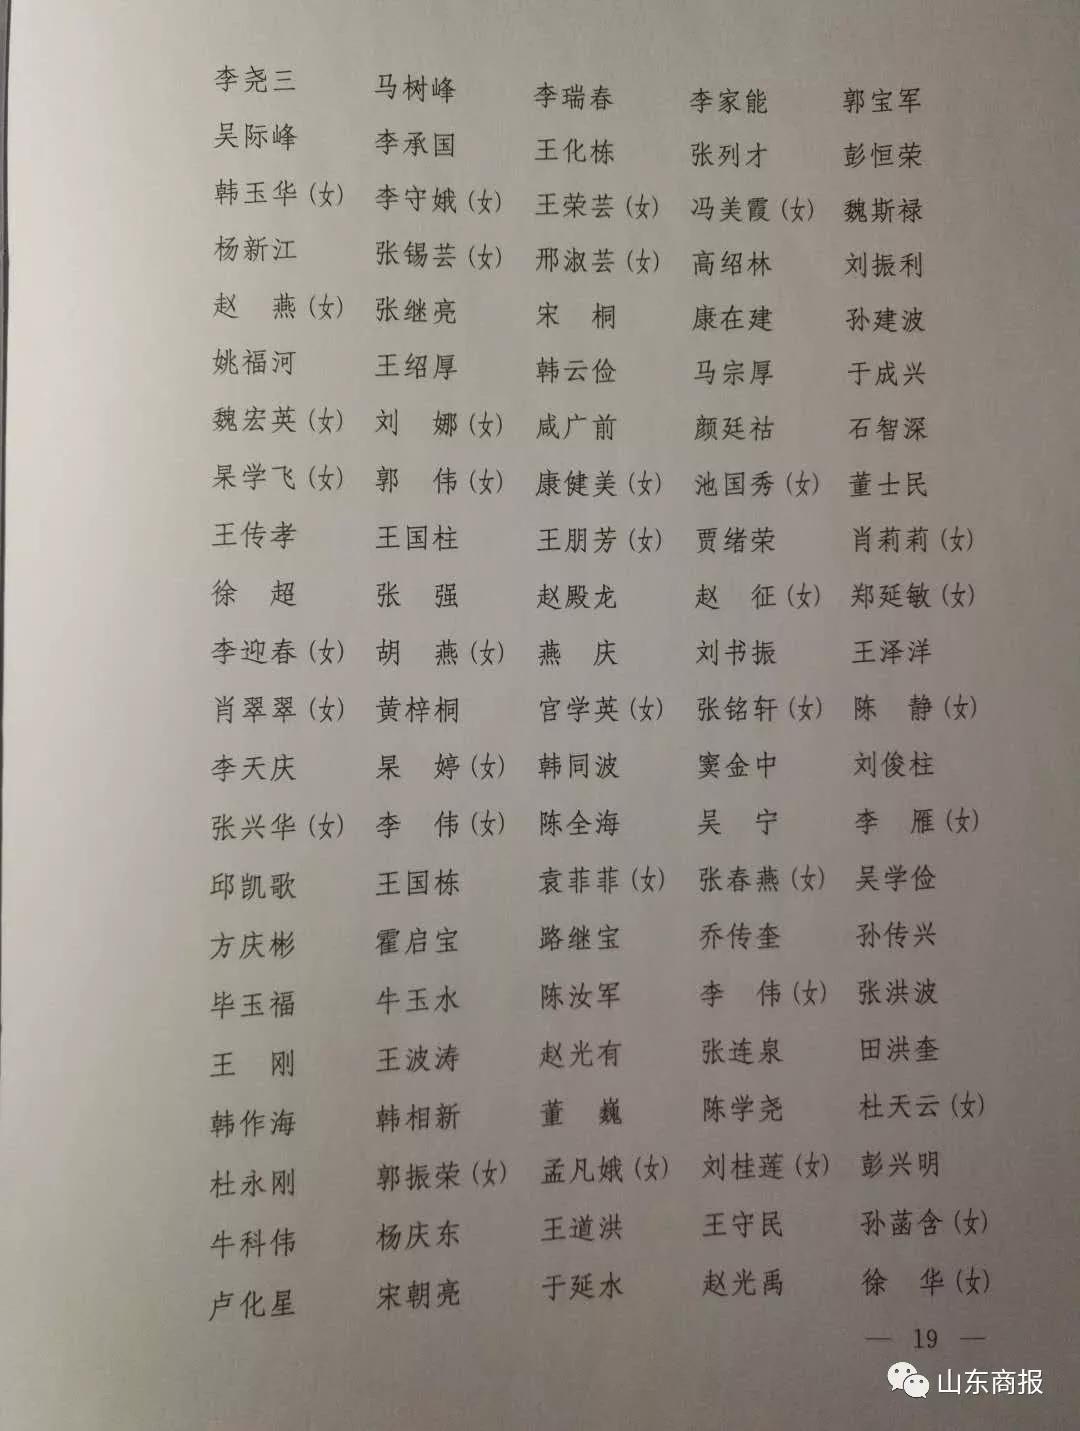 李尧三 马树峰 李瑞春 李家能 郭宝军
吴际峰 李承国 王化栋 张列才 彭恒荣
韩玉华(女) 李守娥(女) 王荣芸(女) 冯美霞(女) 魏斯禄
杨新江 张锡芸(女) 邢淑芸(女) 高绍林 刘振利
赵　燕(女) 张继亮 宋　桐 康在建 孙建波
姚福河 王绍厚 韩云俭 马宗厚 于成兴
魏宏英(女) 刘　娜(女) 咸广前 颜廷祜 石智深
杲学飞(女) 郭　伟(女) 康健美(女) 池国秀(女) 董士民
王传孝 王国柱 王朋芳(女) 贾绪荣 肖莉莉(女)
徐　超 张　强 赵殿龙 赵　征(女) 郑延敏(女)
李迎春(女) 胡　燕(女) 燕　庆 刘书振 王泽洋
肖翠翠(女) 黄梓桐 宫学英(女) 张铭轩(女) 陈　静(女)
李天庆 杲　婷(女) 韩同波 窦金中 刘俊柱
张兴华(女) 李　伟(女) 陈全海 吴　宁 李　雁(女)
邱凯歌 王国栋 袁菲菲(女) 张春燕(女) 吴学俭
方庆彬 霍启宝 路继宝 乔传奎 孙传兴
毕玉福 牛玉水 陈汝军 李　伟(女) 张洪波
王　刚 王波涛 赵光有 张连泉 田洪奎
韩作海 韩相新 董　巍 陈学尧 杜天云(女)
杜永刚 郭振荣(女) 孟凡娥(女) 刘桂莲(女) 彭兴明
牛科伟 杨庆东 王道洪 王守民 孙菡含(女)
卢化星 宋朝亮 于延水 赵光禹 徐　华(女)
— 19 —
山东商报